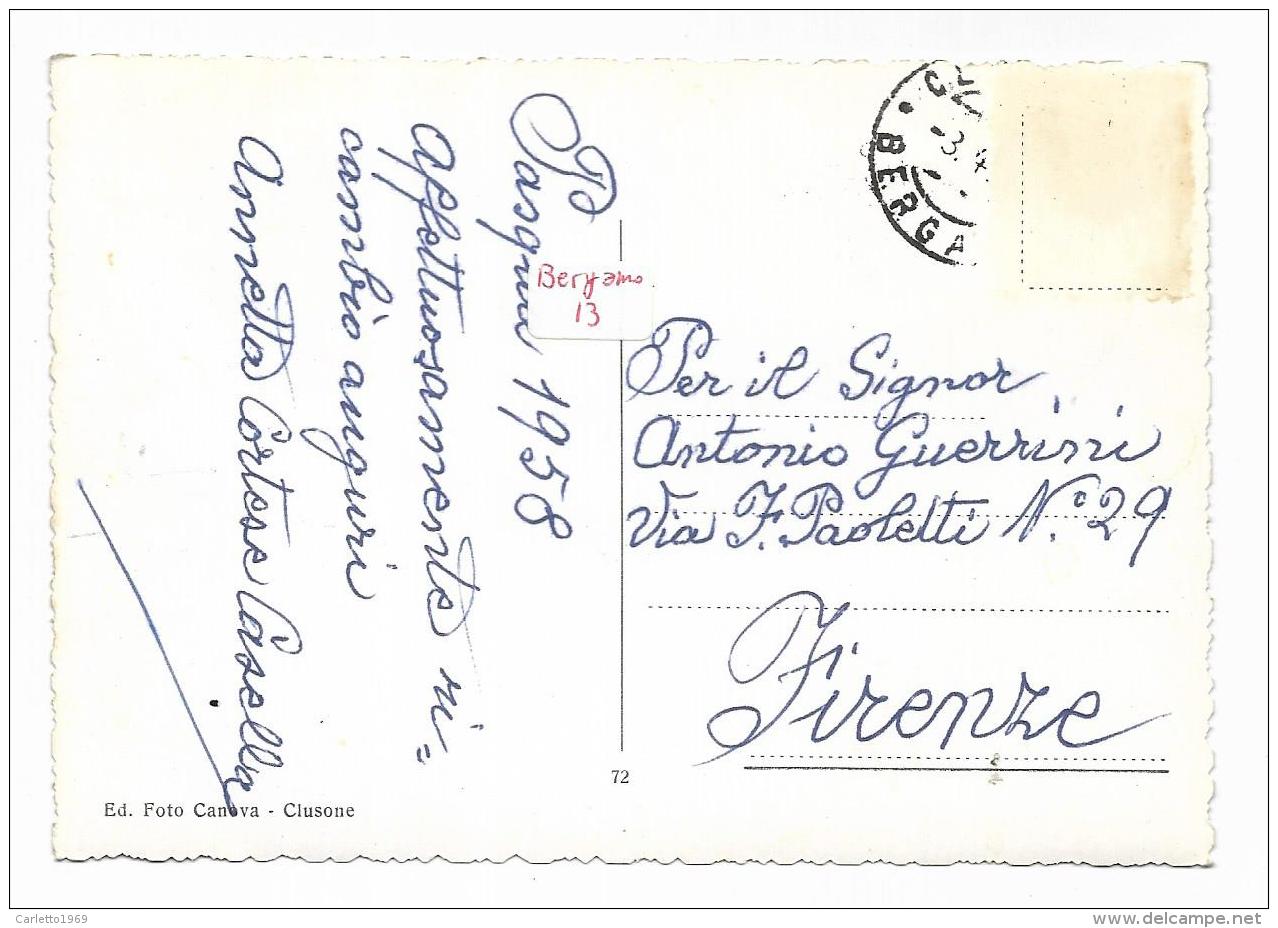 Pasqua 1958
Affettuosamente ri=
cambio auguri
Annetta Cortese Casella
Bergamo
13
3. 4
BERGA
Per il Signor
Antonio Guerrini
Via F. Paoletti N.° 29
Firenze
72
Ed. Foto Canova - Clusone
Carletto1969
delcampe.net